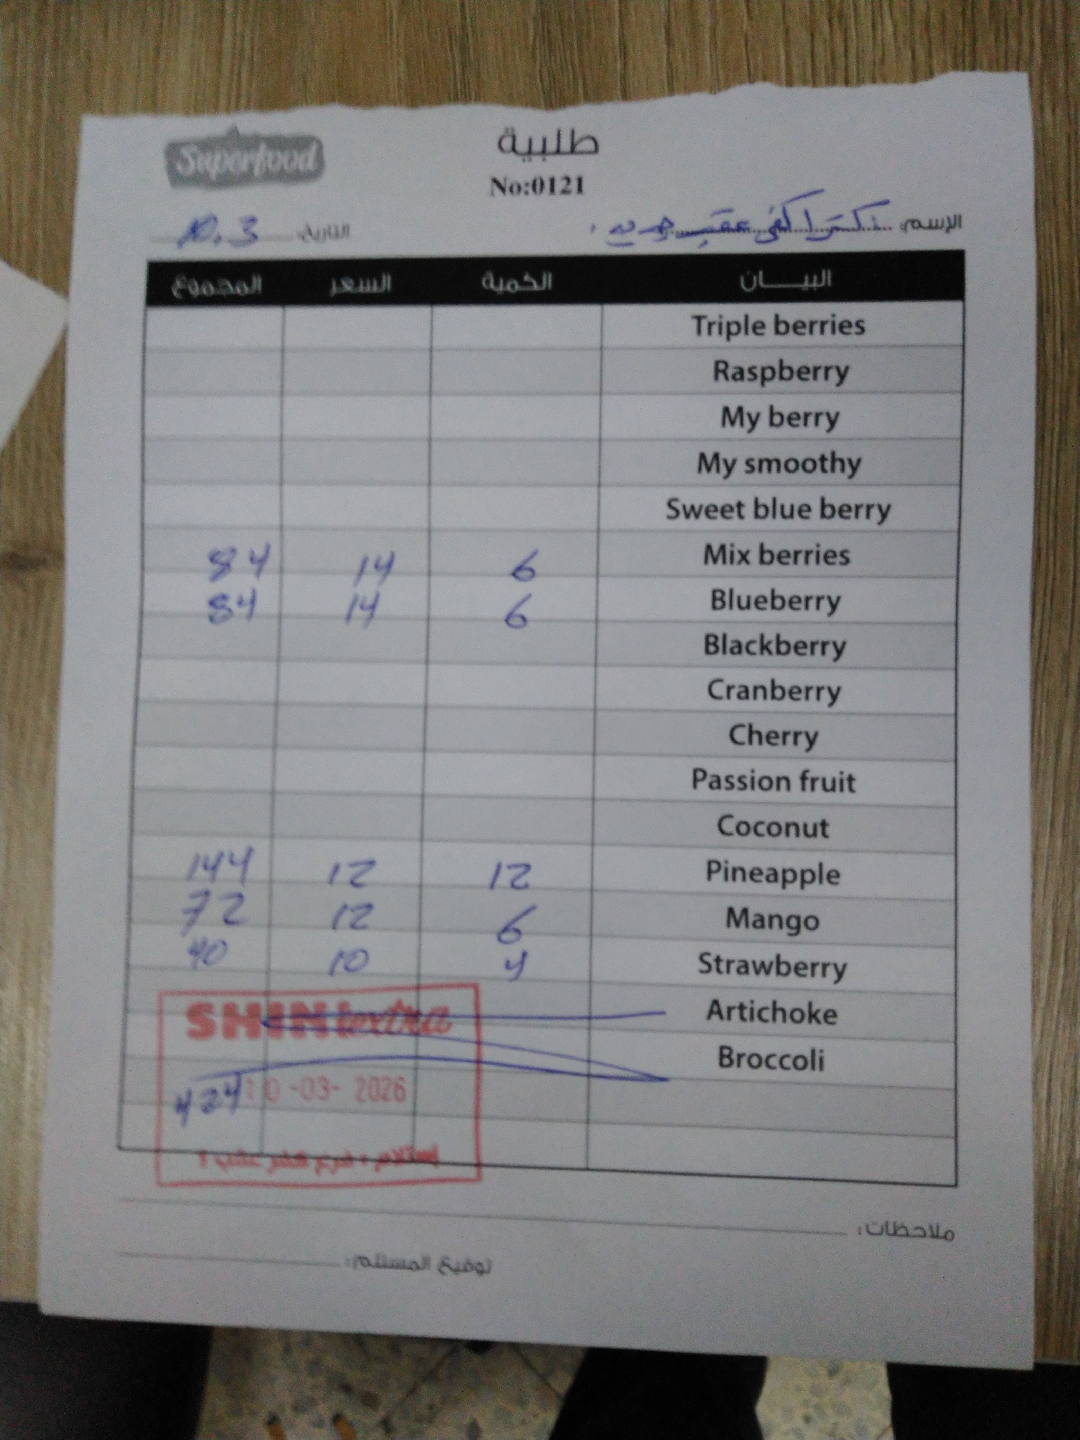 Superfood
طلبية
No:0121
الإسم:
التاريخ: 10.3
البيـــان الكمية السعر المجموع
Triple berries
Raspberry
My berry
My smoothy
Sweet blue berry
Mix berries 6 14 84
Blueberry 6 14 84
Blackberry
Cranberry
Cherry
Passion fruit
Coconut
Pineapple 12 12 144
Mango 6 12 72
Strawberry 4 10 40
Artichoke
Broccoli
SHINI extra
424
10 -03- 2026
إستلام : فرع كفر عقب 2
ملاحظات:
توقيع المستلم: